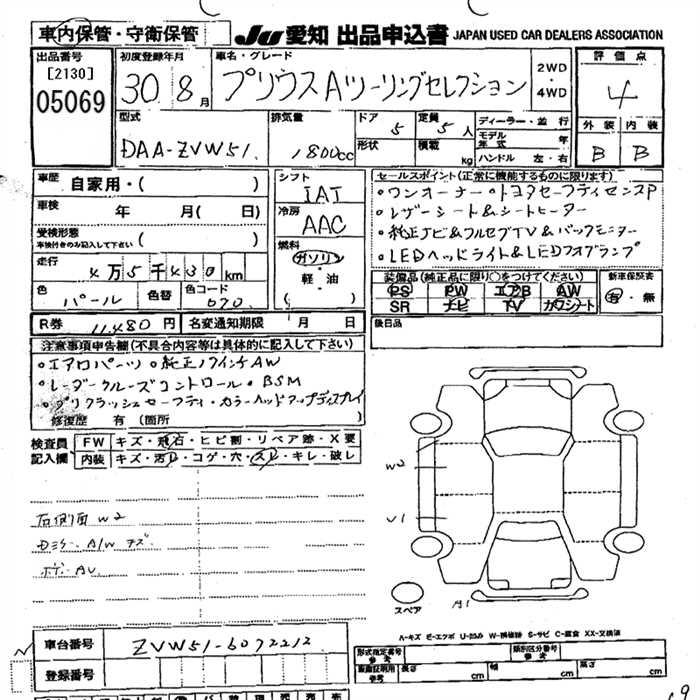 車内保管・守衛保管
JU 愛知 出品申込書 JAPAN USED CAR DEALERS ASSOCIATION
出品番号 [2130] 05069
初度登録年月 30 8月
車名・グレード プリウスAツーリングセレクション
2WD・4WD
評価点 4
外装 B 内装 B
型式 DAA-ZVW51
排気量 1800cc
ドア 5 形状
定員 5人 積載 kg
ディーラー・並行
モデル年式 年
ハンドル 左・右
車歴 自家用・( )
車検 年 月( 日)
受検形態 車検付きのみ記入して下さい ( )
走行 4万5千430km
色 パール 色替 色コード 070
シフト IAT
冷房 AAC
燃料 ガソリン・軽・油 ( )
セールスポイント(正常に機能するものに限ります)
・ワンオーナー・トヨタセーフティセンスP
・レザーシート&シートヒーター
・純正ナビ&フルセグTV&バックモニター
・LEDヘッドライト&LEDフォグランプ
装備品(純正品に限り○をつけてください)
PS PW エアB AW
SR ナビ TV カワシート
新車保証書 有・無
R券 11,480円 名変通知期限 月 日
後日品
注意事項申告欄(不具合内容等は具体的に記入して下さい)
・エアロパーツ・純正17インチAW
・レーダークルーズコントロール・BSM
・プリクラッシュセーフティ・カラーヘッドアップディスプレイ
修復歴 有(箇所 )
検査員記入欄
FW キズ・飛石・ヒビ割・リペア跡・X要
内装 キズ・汚れ・コゲ・穴・スレ・キレ・破レ
右側面 W2
Dミラー A/W キズ
ボデー AU
W2
U1
スペア
A1
A-キズ E-エクボ U-凹み W-補修跡 S-サビ C-腐食 XX-交換済
車台番号 ZVW51-6072212
登録番号
形式指定番号 参考
類別区分番号 参考
長さ cm 幅 cm 高さ cm